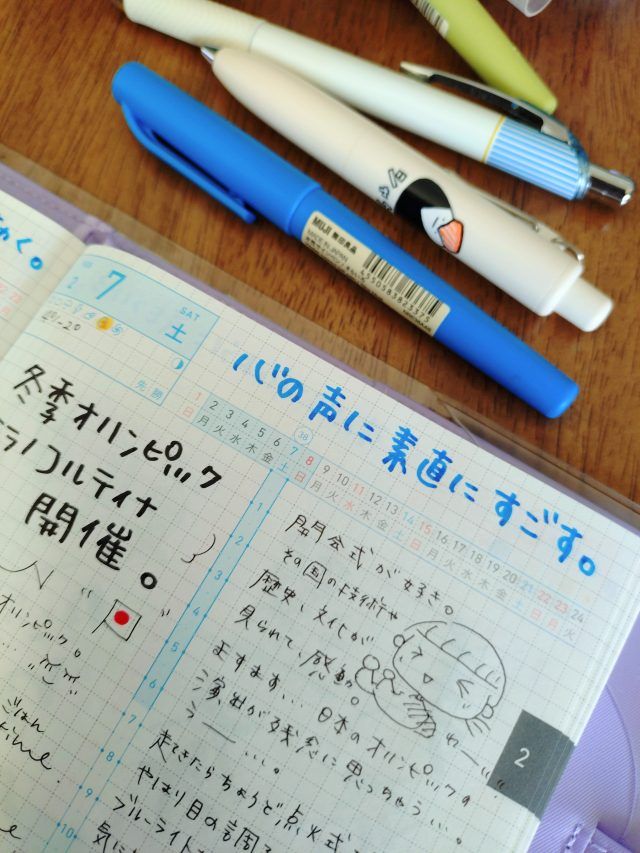 MUJI 無印良品
4550583833335
2
7
SAT
土
先勝
冬季オリンピック
ミラノコルティナ
開催。
心の声に素直にすごす。
38
1 2 3 4 5 6 7 8 9 10 11 12 13 14 15 16 17 18 19 20 21 22 23 24
日 月 火 水 木 金 土 日 月 火 水 木 金 土 日 月 火 水 木 金 土 日 月 火
オリンピック。
ごはん
time.
1
2
3
4
5
6
7
8
9
10
開会式が好き。
その国の技術や
歴史、文化が
見られて、感動。
ますます… 日本のオリンピックの
演出が残念に思っちゃう…。
うー…。
わー
起きたらちょうど点火式
やはり目の調子
ブルーライト
気に
2